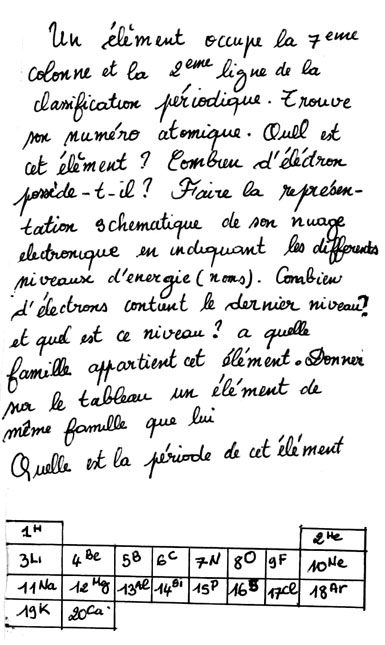 Un élèment occupe la 7eme
colonne et la 2eme ligne de la
classification périodique. Trouve
son numéro atomique. Quel est
cet élèment ? Combien d'éléctron
possède-t-il ? Faire la représen-
tation schematique de son nuage
electronique en indiquant les differents
niveaux d'energie (noms). Combien
d'électrons contient le dernier niveau?
et quel est ce niveau ? a quelle
famille appartient cet élément. Donner
sur le tableau un élément de
même famille que lui
Quelle est la période de cet élément
1H 2He
3Li 4Be 5B 6C 7N 8O 9F 10Ne
11Na 12Mg 13Al 14Si 15P 16S 17Cl 18Ar
19K 20Ca